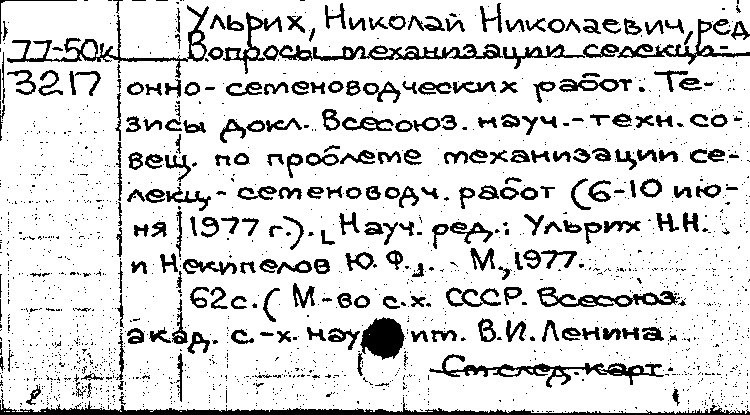 Ульрих, Николай Николаевич, ред
77-50к Вопросы механизации селекци-
32П онно-семеноводческих работ. Те-
зисы докл. Всесоюз. науч.-техн. со-
вещ. по проблеме механизации се-
лекц.-семеноводч. работ (6-10 ию-
ня 1977 г.). [Науч. ред.: Ульрих Н.Н.
и Некипелов Ю.Ф.]. М., 1977.
62с. (М-во с.х. СССР. Всесоюз.
акад. с.-х. нау им. В.И. Ленина.
См след. карт.